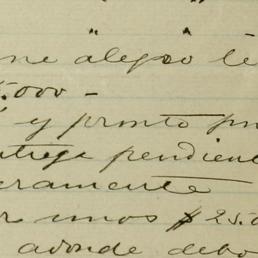 me alegro te
5.000 -
y pronto pu
ntrega pendient
eramente
r unos $ 25.0
adonde debo